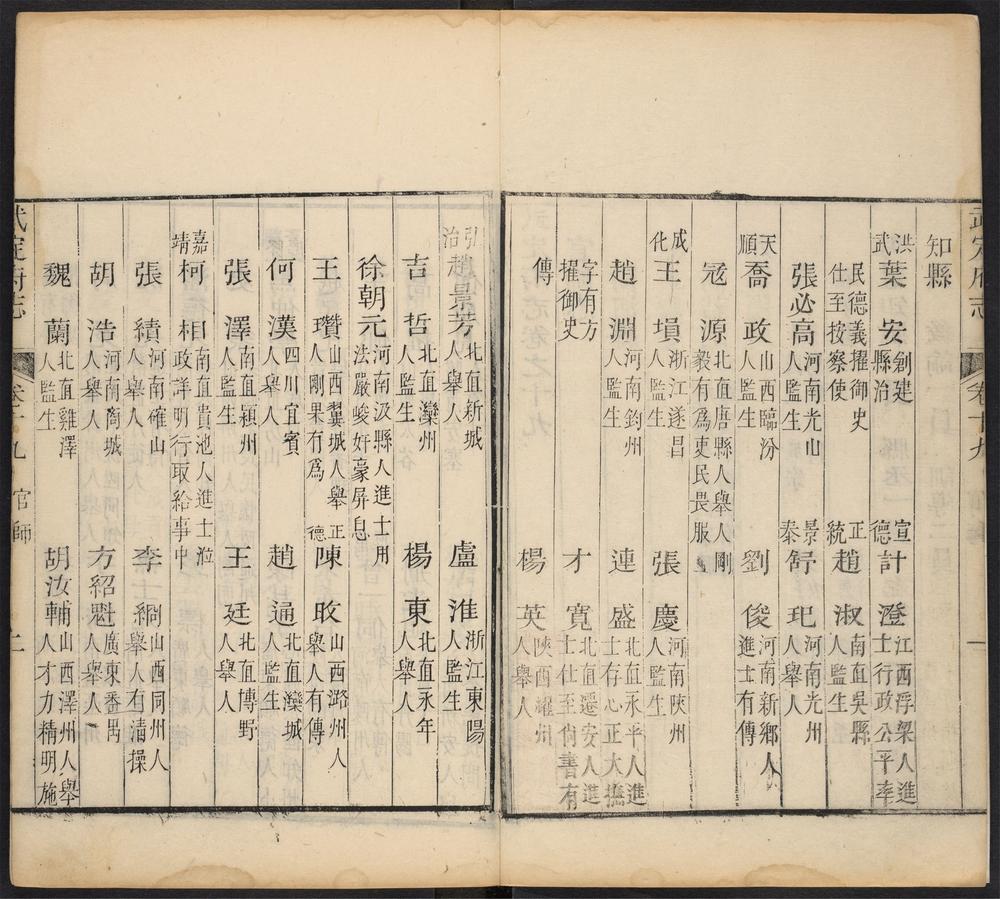 武定府志 卷十九 一
知縣
洪武 葉安 創建縣治 宣德 計澄 江西浮梁人進士行政公平率
民德義擢御史仕至按察使 正統 趙淑 南直吳縣人監生
張必高 河南光山人監生 景泰 舒玘 河南光州人舉人
天順 喬政 山西臨汾人監生 劉俊 河南新鄉人進士有傳
冦源 北直唐縣人舉人剛毅有爲吏民畏服
成化 王塤 浙江遂昌人監生 張慶 河南陝州人監生
趙淵 河南鈞州人監生 連盛 北直永平人進士存心正大撫
字有方擢御史 才寬 北直遷安人進士仕至尚書有
傳 楊英 陝西耀州人舉人
弘治 趙景芳 北直新城人舉人 盧淮 浙江東陽人監生
吉哲 北直灤州人監生 楊東 北直永年人舉人
徐朝元 河南汲縣人進士用法嚴峻奸豪屏息
王瓚 山西翼城人舉人剛果有爲 正德 陳旼 山西潞州人舉人有傳
何漢 四川宜賓人舉人 趙逼 北直灤城人監生
張澤 南直潁州人監生 王廷 北直博野人舉人
嘉靖 柯相 南直貴池人進士涖政詳明行取給事中
張績 河南確山人舉人 李綱 山西同州人舉人有清操
胡浩 河南商城人舉人 方紹魁 廣東番禺人舉人
魏蘭 北直雞澤人監生 胡汝輔 山西澤州人舉人才力精明施
武定府志 卷十九 官師 上